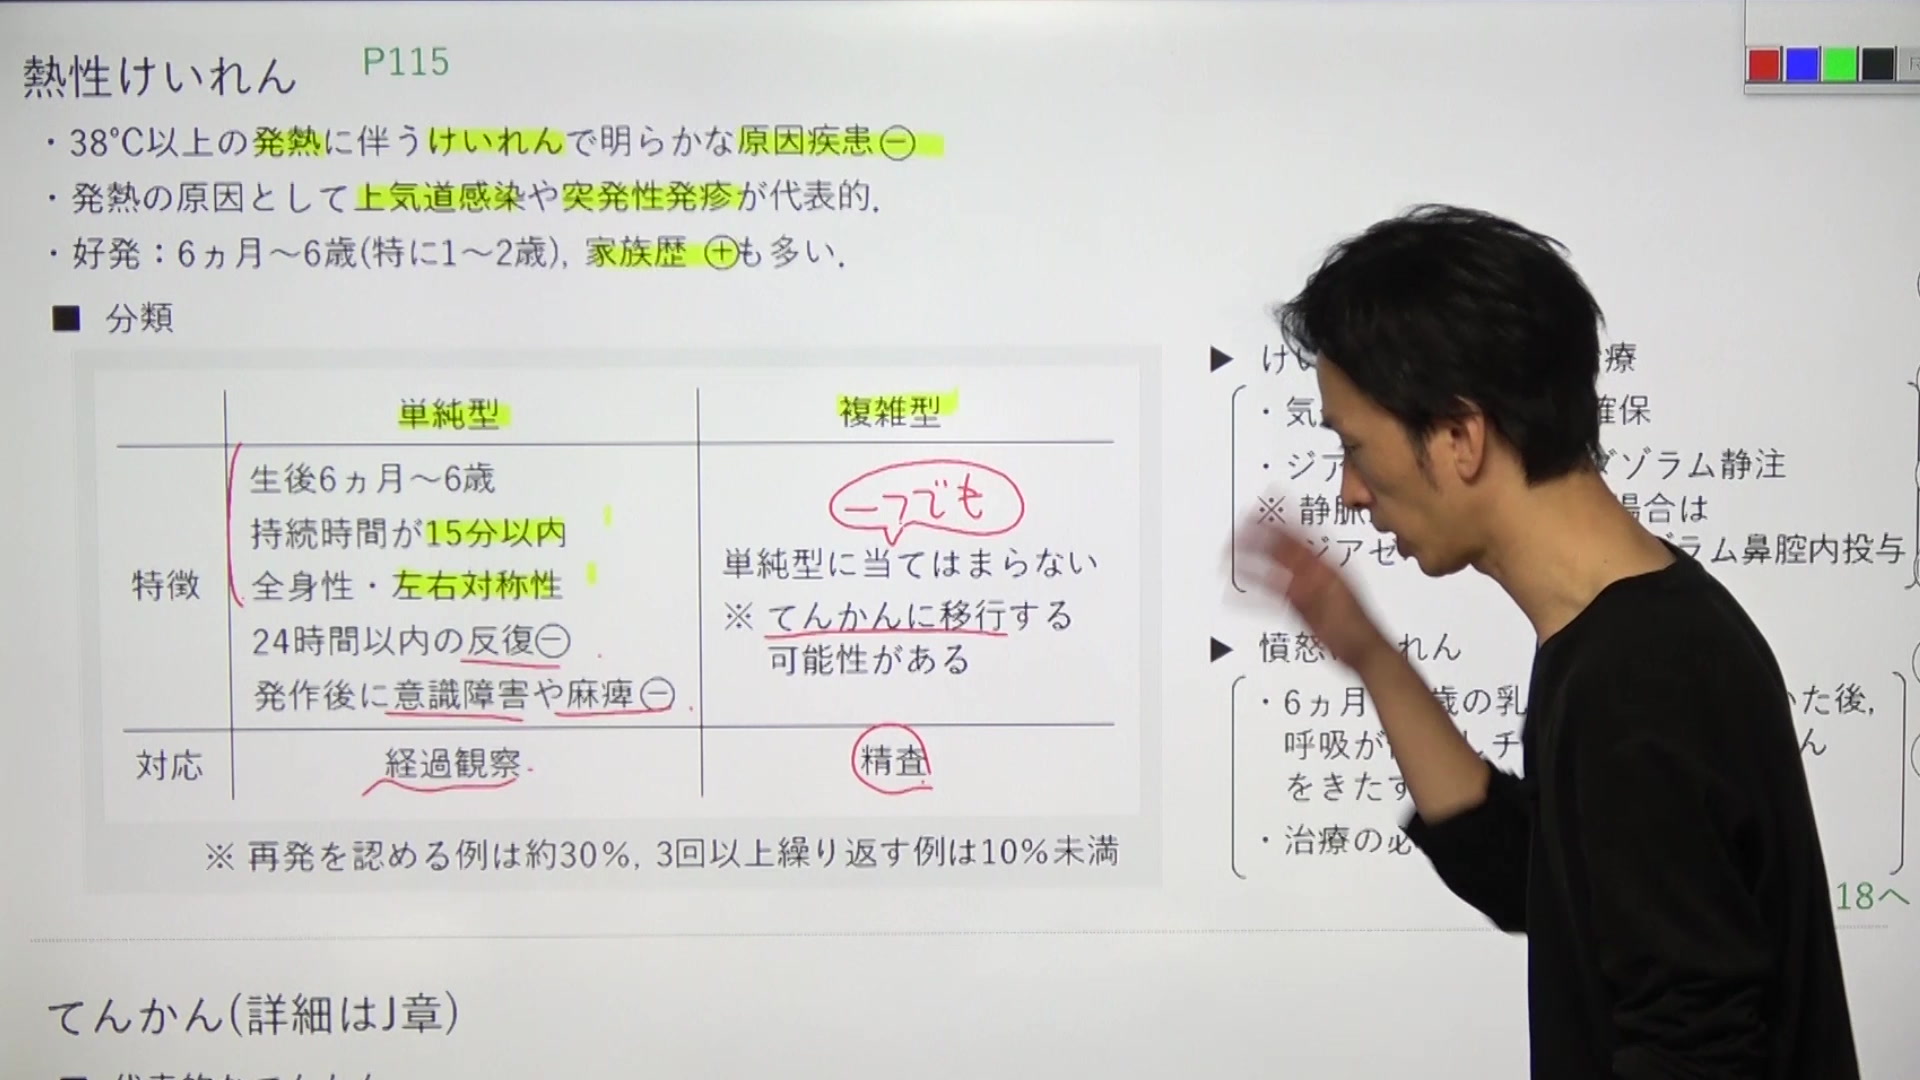 熱性けいれん P115
・38℃以上の発熱に伴うけいれんで明らかな原因疾患㊀
・発熱の原因として上気道感染や突発性発疹が代表的.
・好発：6ヵ月〜6歳(特に1〜2歳), 家族歴 ⊕も多い.
■ 分類
単純型 複雑型
特徴
生後6ヵ月〜6歳
持続時間が15分以内
全身性・左右対称性
24時間以内の反復⊖
発作後に意識障害や麻痺⊖
一つでも
単純型に当てはまらない
※ てんかんに移行する
可能性がある
対応 経過観察 精査
※ 再発を認める例は約30%, 3回以上繰り返す例は10%未満
▶ けい 療
・気 確保
・ジア ゾラム静注
※ 静脈 場合は
ジアゼ ラム鼻腔内投与
▶ 憤怒 れん
・6ヵ月 歳の乳 いた後,
呼吸が しチ ん
をきたす
・治療の必
18へ
てんかん(詳細はJ章)